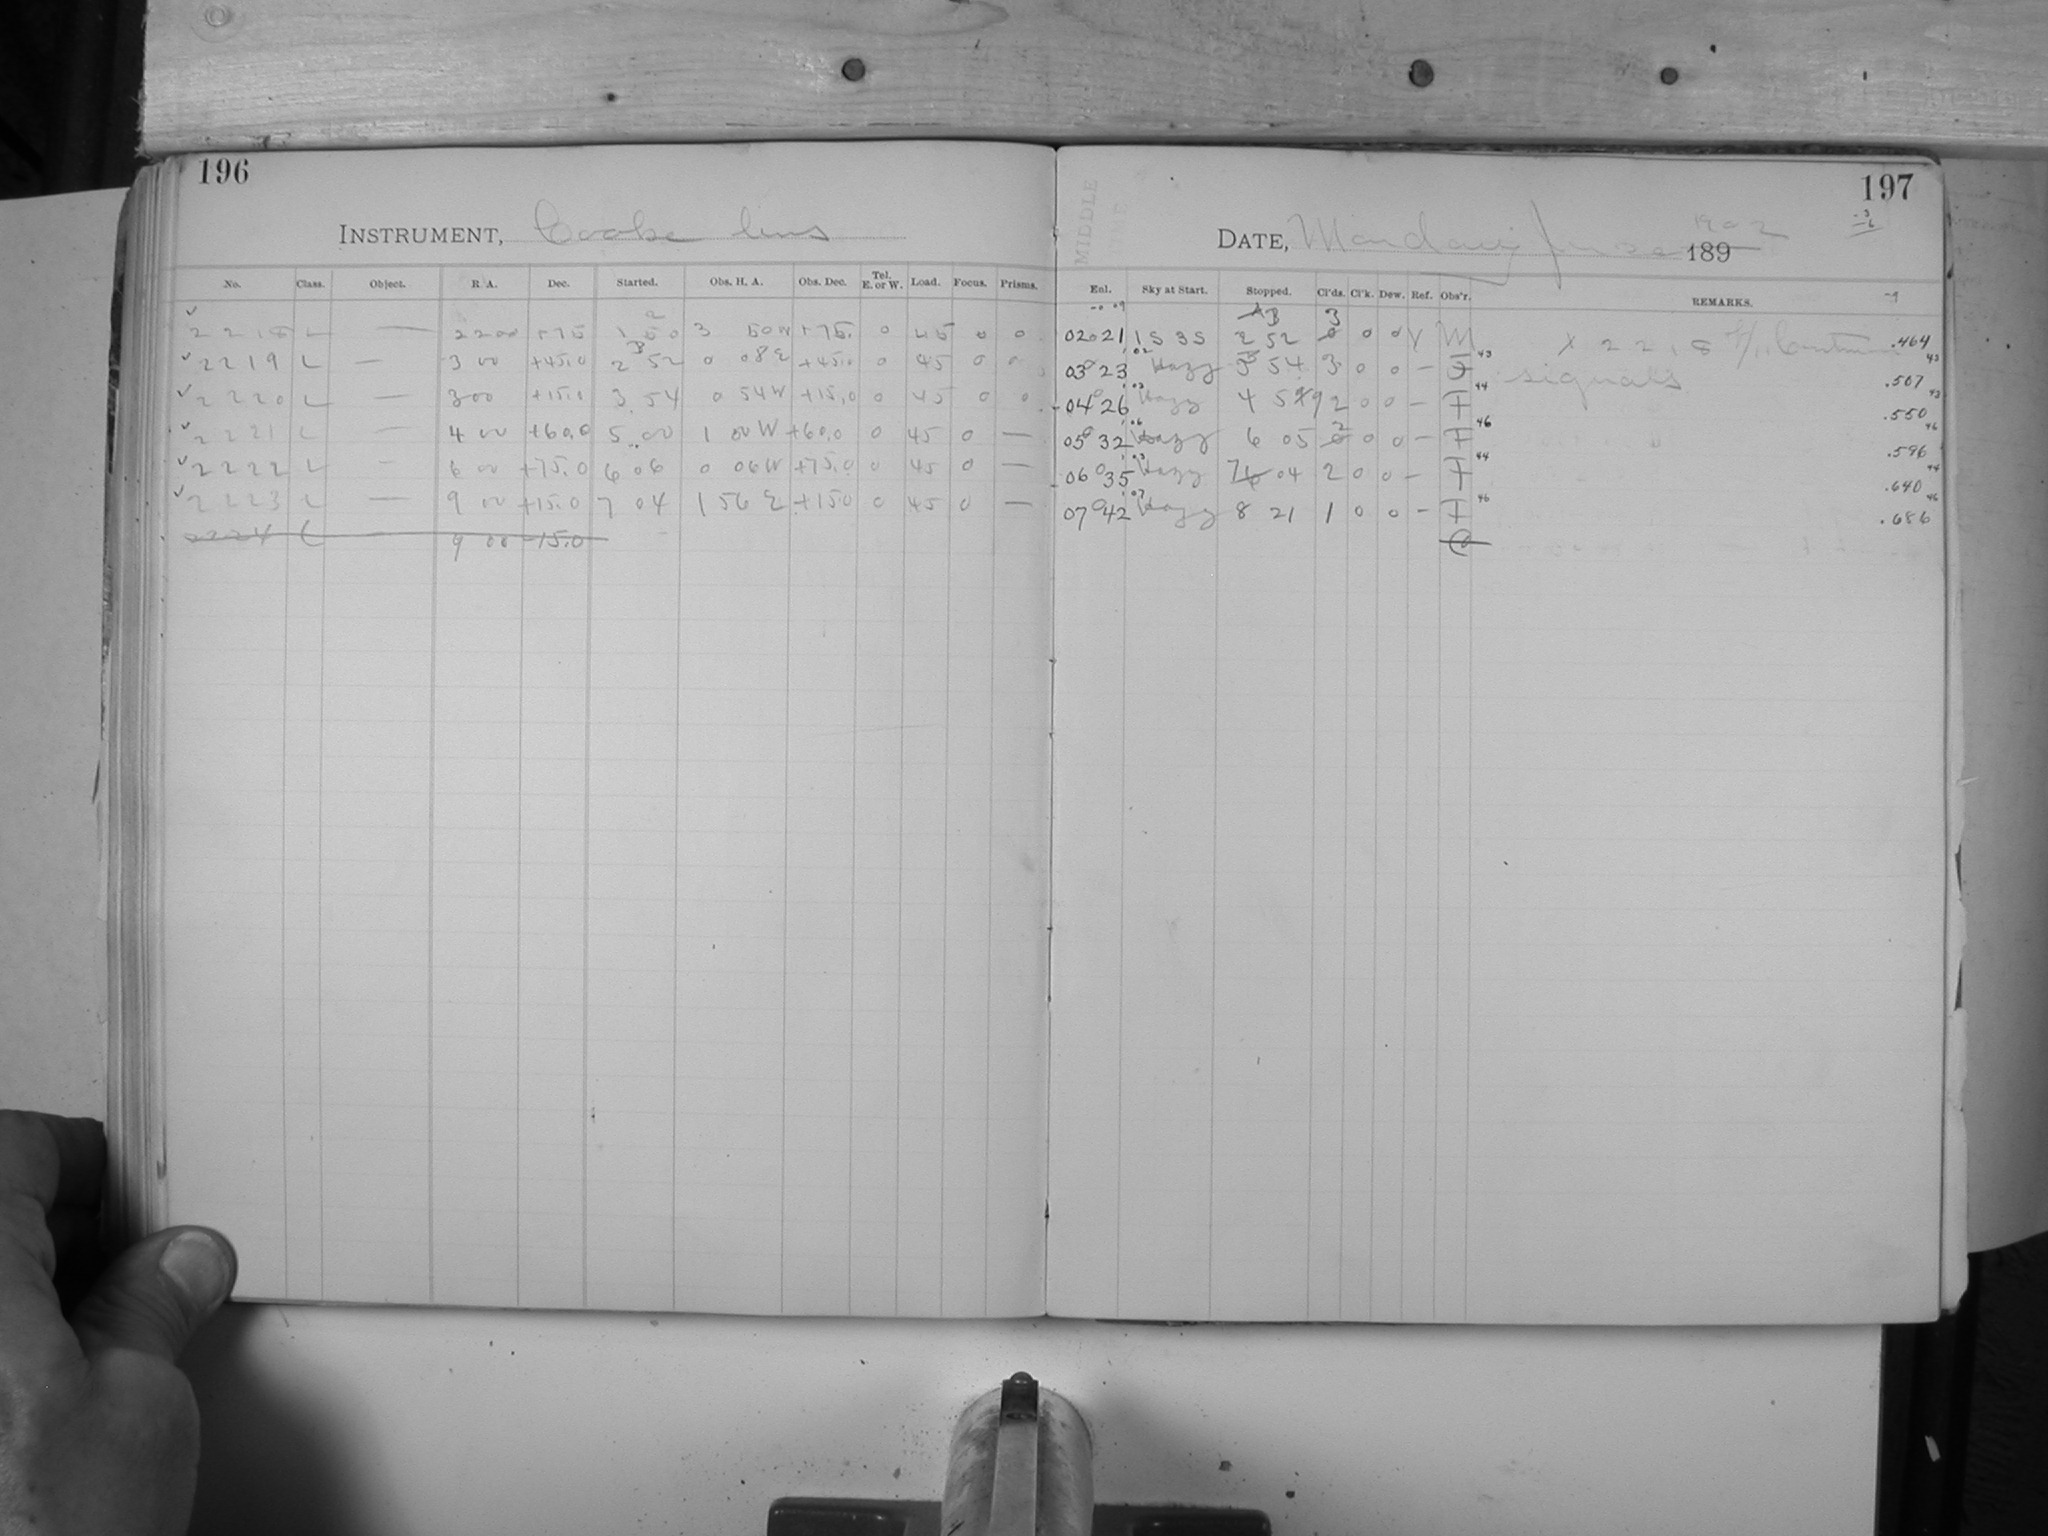 196
INSTRUMENT, Cooke lens
No. Class. Object. R. A. Dec. Started. Obs. H. A. Obs. Dec. Tel. E. or W. Load. Focus. Prisms.
2218 L — 22 00 +75 1 50 3 50 W +75. 0 45 0 0
2219 L — 3 00 +45.0 2 52 0 08 E +45.0 0 45 0 0
2220 L — 3 00 +15.0 3 54 0 54 W +15.0 0 45 0 0
2221 L — 4 00 +60.0 5 00 1 00 W +60.0 0 45 0 —
2222 L — 6 00 +75.0 6 06 0 06 W +75.0 0 45 0 —
2223 L — 9 00 +15.0 7 04 1 56 E +15.0 0 45 0 —
2224 L — 9 00 -15.0
197
MIDDLE
DATE, Monday, June 189 1902
Enl. Sky at Start. Stopped. Cl'ds. Cl'k. Dew. Ref. Obs'r. REMARKS.
02 21 1S 3S 2 52 3 0 0 V M X 2218 signals .464
03 23 Hazy 3 54 3 0 0 — F 43 .507
04 26 Hazy 4 59 2 0 0 — F 44 .550
05 32 Hazy 6 05 2 0 0 — F 46 .596
06 35 Hazy 7 04 2 0 0 — F 44 .640
07 42 Hazy 8 21 1 0 0 — F 46 .686